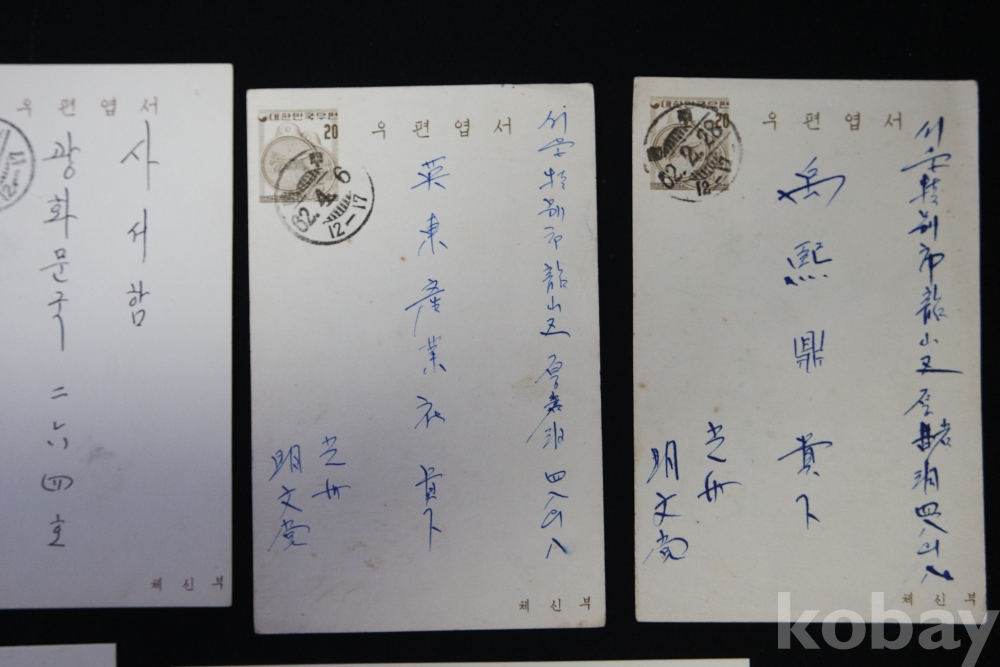 우편엽서
사서함
광화문국 二六四호
12-17
체신부
대한민국우편
20
우편엽서
62.4.6
12-17
서울特別市龍山区厚岩洞四八의八
英東産業社 貴下
光州
明文堂
체신부
대한민국우편
20
우편엽서
62.2.28
12-17
서울特別市龍山区厚岩洞四八의八
熙鼎 貴下
光州
明文堂
체신부
kobay